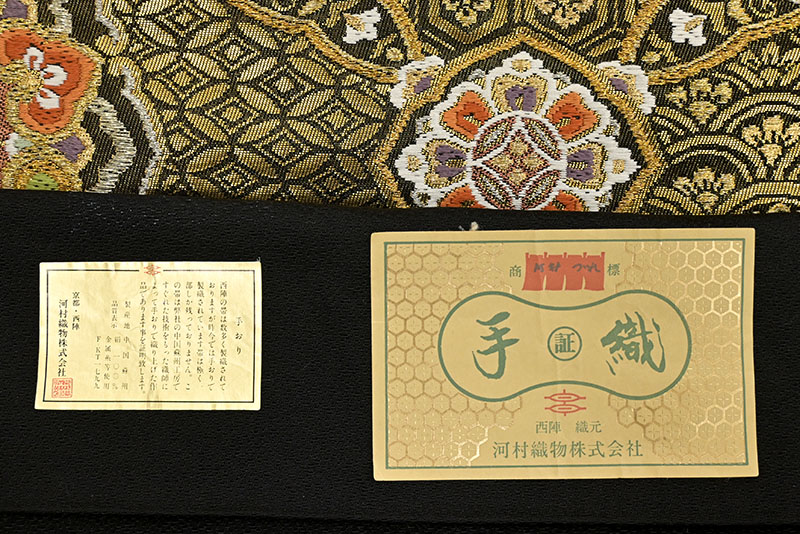 手おり
西陣の帯は数多く製織されて
おりますが時今では手おりで
製織されています帯は極く一
部しか残っておりません。こ
の帯は弊社の中国蘇州工房で
すぐれた技術をもった織師に
よって手おりで織り上げた作
品であります事を証明致します。
製産地 中国蘇州
品質表示 絹一〇〇%
金属糸等使用
京都・西陣
河村織物株式会社
商 河村 つづれ 標
手 証 織
西陣 織元
河村織物株式会社